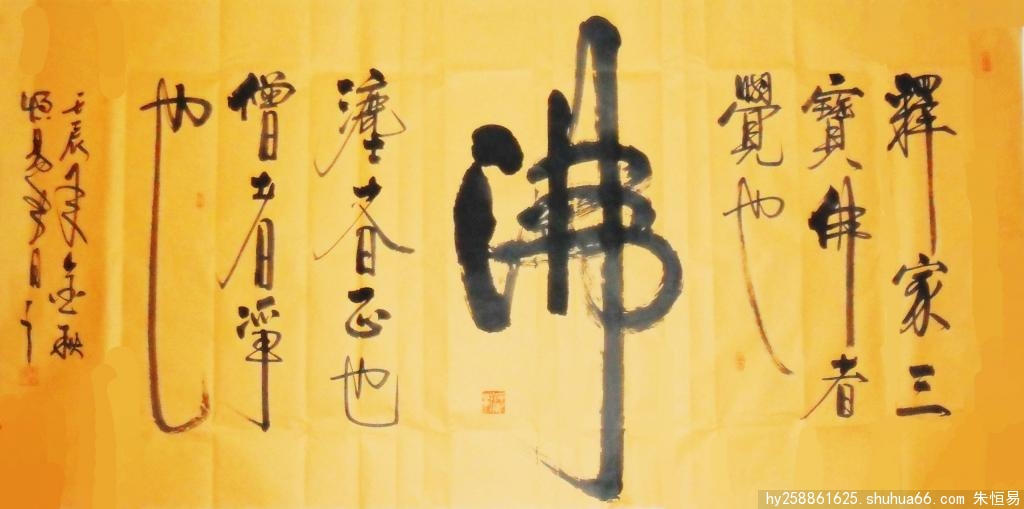 釋家三
寶佛者
覺也
佛
灋者正也
僧者淨
也
壬辰年金秋
恒易
hy258861625.shuhua66.com 朱恒易